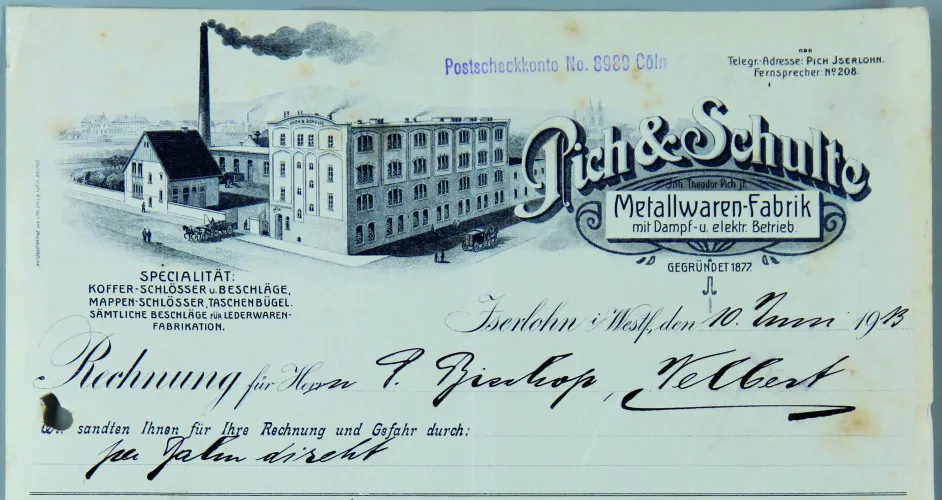 Postscheckkonto No. 8989 Cöln
Telegr.-Adresse: PICH JSERLOHN.
Fernsprecher: Nº 208.
PICH & SCHULTE
Pich & Schulte
Inh. Theodor Pich jr.
Metallwaren-Fabrik
mit Dampf- u. elektr. Betrieb.
GEGRÜNDET 1877.
SPECIALITÄT:
KOFFER-SCHLÖSSER u. BESCHLÄGE,
MAPPEN-SCHLÖSSER, TASCHENBÜGEL.
SÄMTLICHE BESCHLÄGE FÜR LEDERWAREN-
FABRIKATION.
Iserlohn i/Westf., den 10. Juni 1913
Rechnung für Herrn P. Bischop, Velbert
Wir sandten Ihnen für Ihre Rechnung und Gefahr durch:
per Bahn direkt